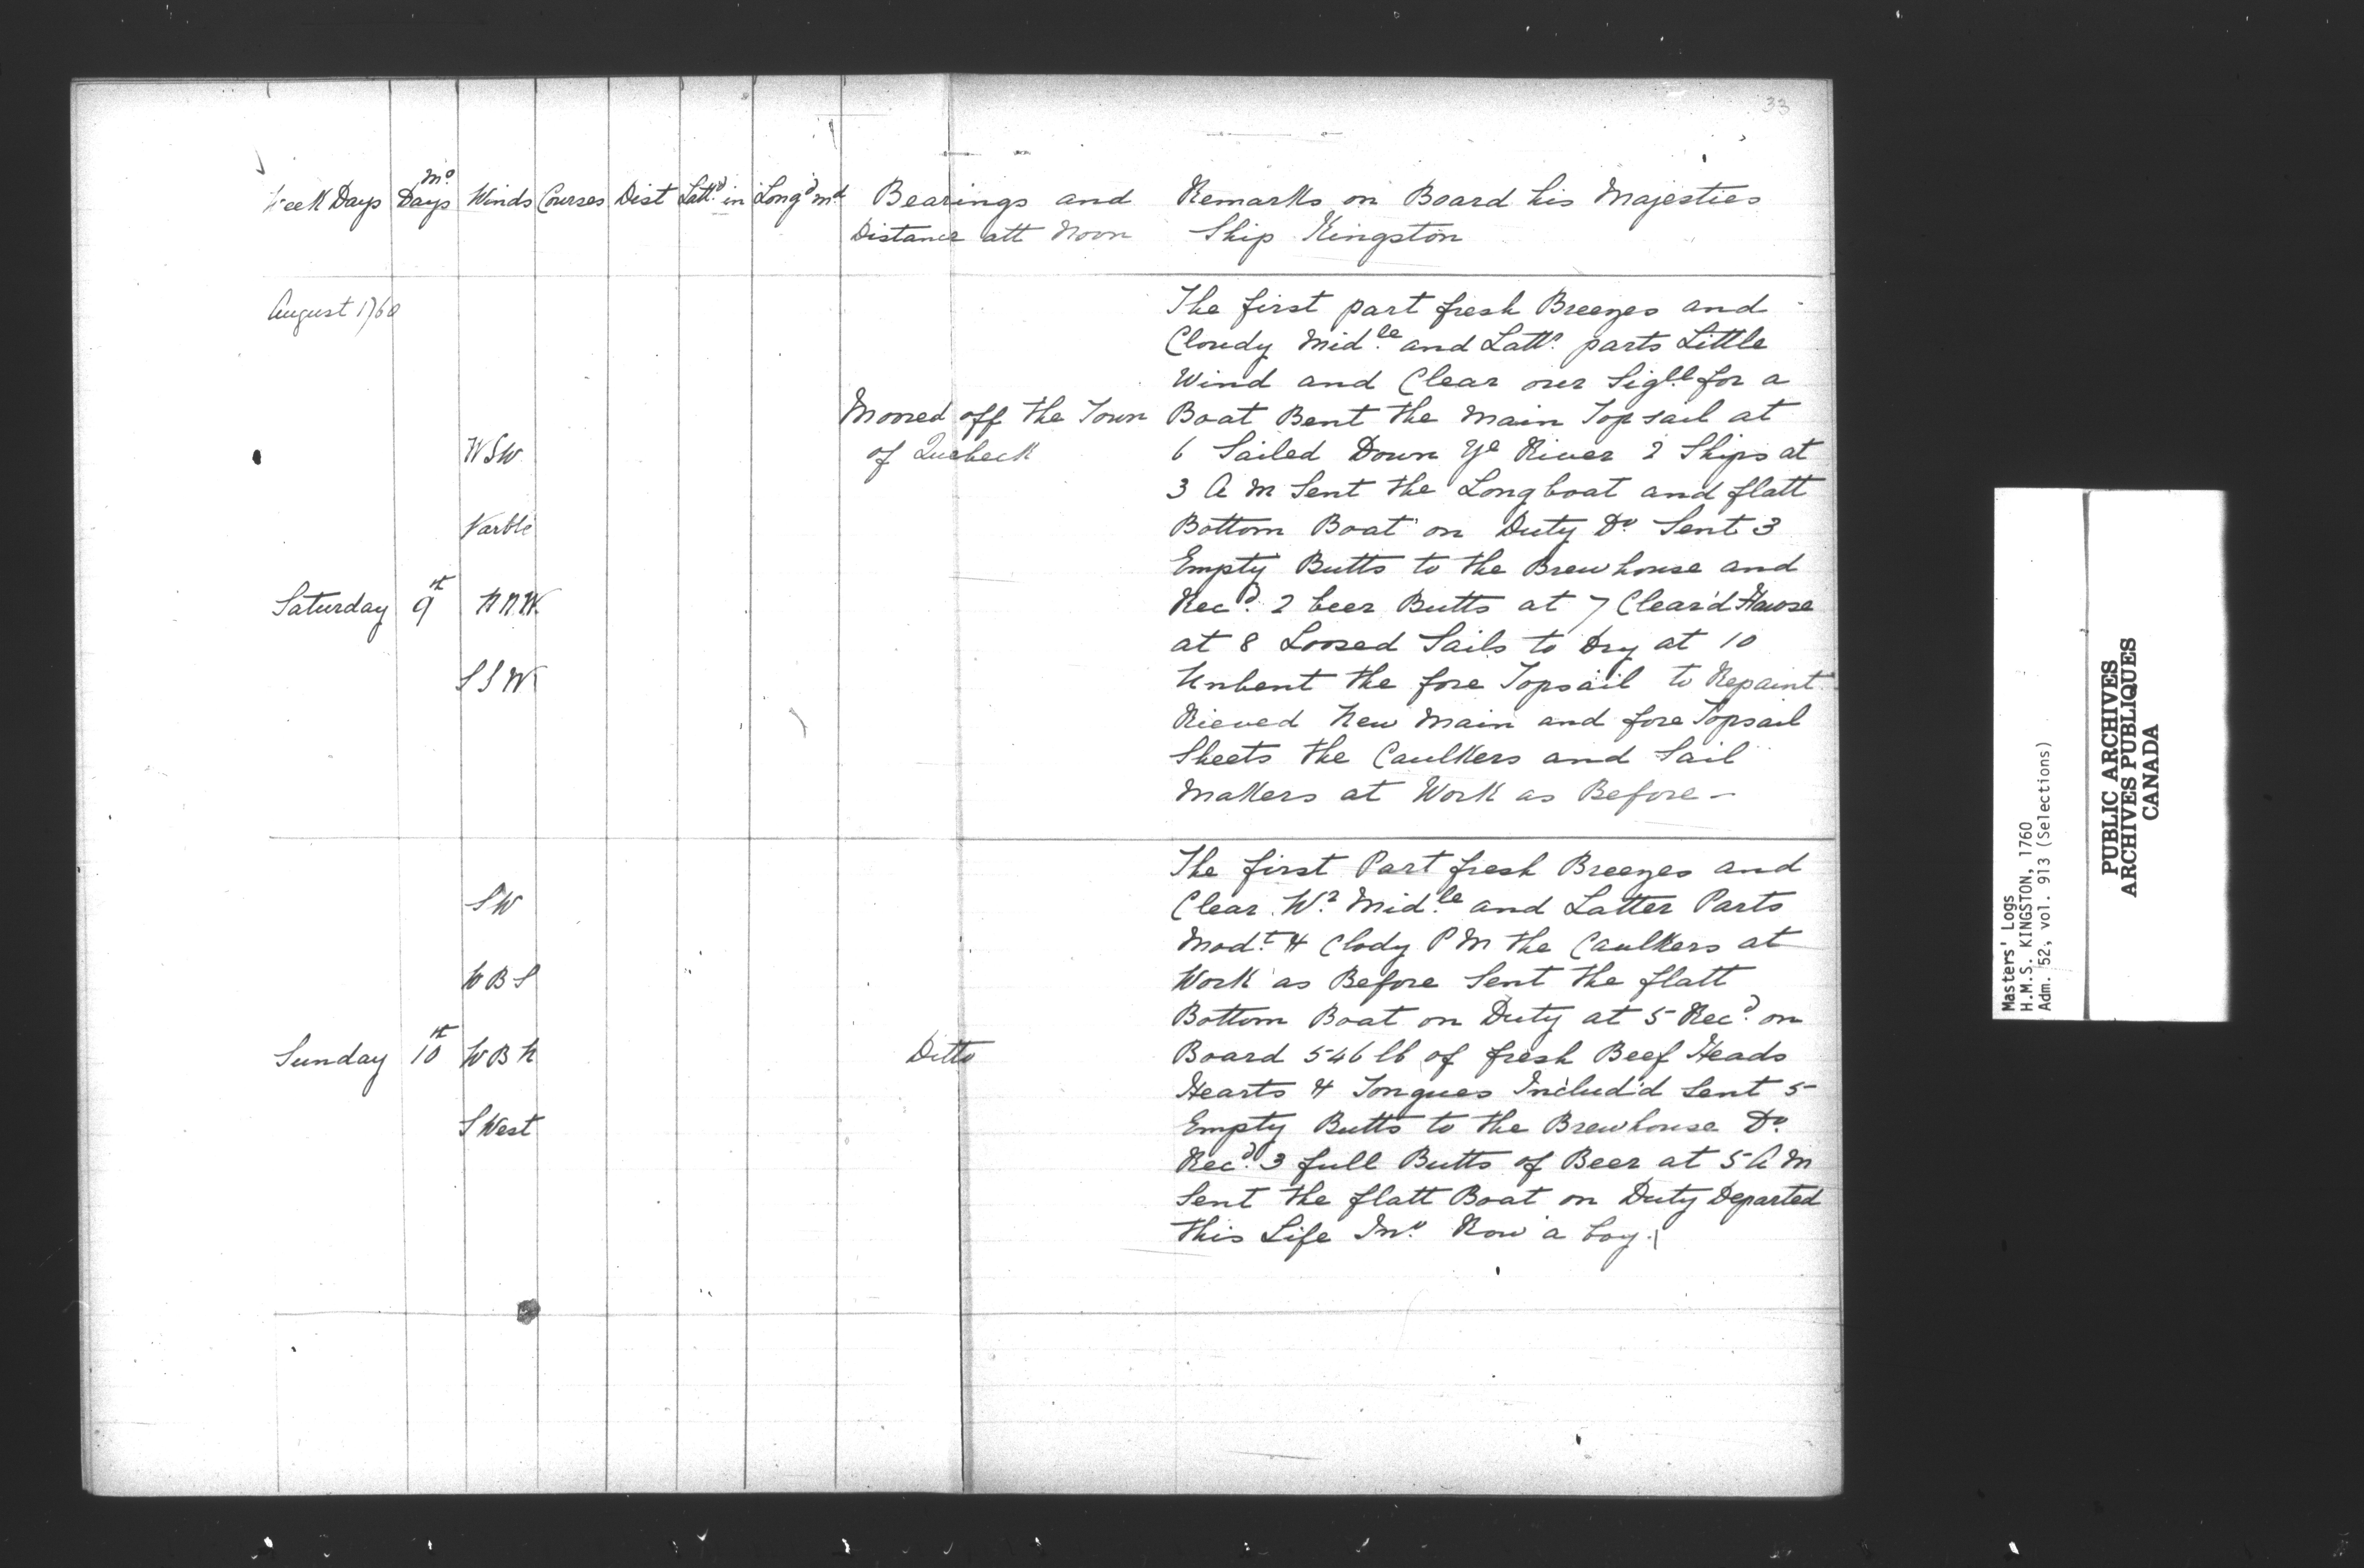 33
Week Days
Mo. Days
Winds
Courses
Dist
Lattd. in
Longd md
Bearings and
Distance att Noon
Remarks on Board his Majesties
Ship Kingston
August 1760
Saturday 9th
WSW
Varble
NNW.
SSW
Moored off the Town
of Quebeck
The first part fresh Breezes and
Cloudy Midle and Lattr. parts Little
Wind and Clear our Sigll for a
Boat Bent the Main Topsail at
6 Sailed Down Ye River 2 Ships at
3 A M Sent the Longboat and flatt
Bottom Boat on Duty Do Sent 3
Empty Butts to the Brewhouse and
Recd. 2 beer Butts at 7 Clear'd Hawse
at 8 Loosed Sails to Dry at 10
Unbent the fore Topsail to Repaint
Rieved New Main and fore Topsail
Sheets the Caulkers and Sail
Makers at Work as Before –
Sunday 10th
SW
WBS
WBN
SWest
Ditto
The first Part fresh Breezes and
Clear Wr. Midle and Latter Parts
Modt & Clody P M the Caulkers at
Work as Before Sent the flatt
Bottom Boat on Duty at 5 Recd. on
Board 546 lb of fresh Beef Heads
Hearts & Tongues Includ'd Sent 5
Empty Butts to the Brewhouse Do.
Recd. 3 full Butts of Beer at 5 A M
Sent the flatt Boat on Duty Departed
this Life Row a boy.
Masters' Logs
H.M.S. KINGSTON, 1760
Adm. 52, vol. 913 (Selections)
PUBLIC ARCHIVES
ARCHIVES PUBLIQUES
CANADA